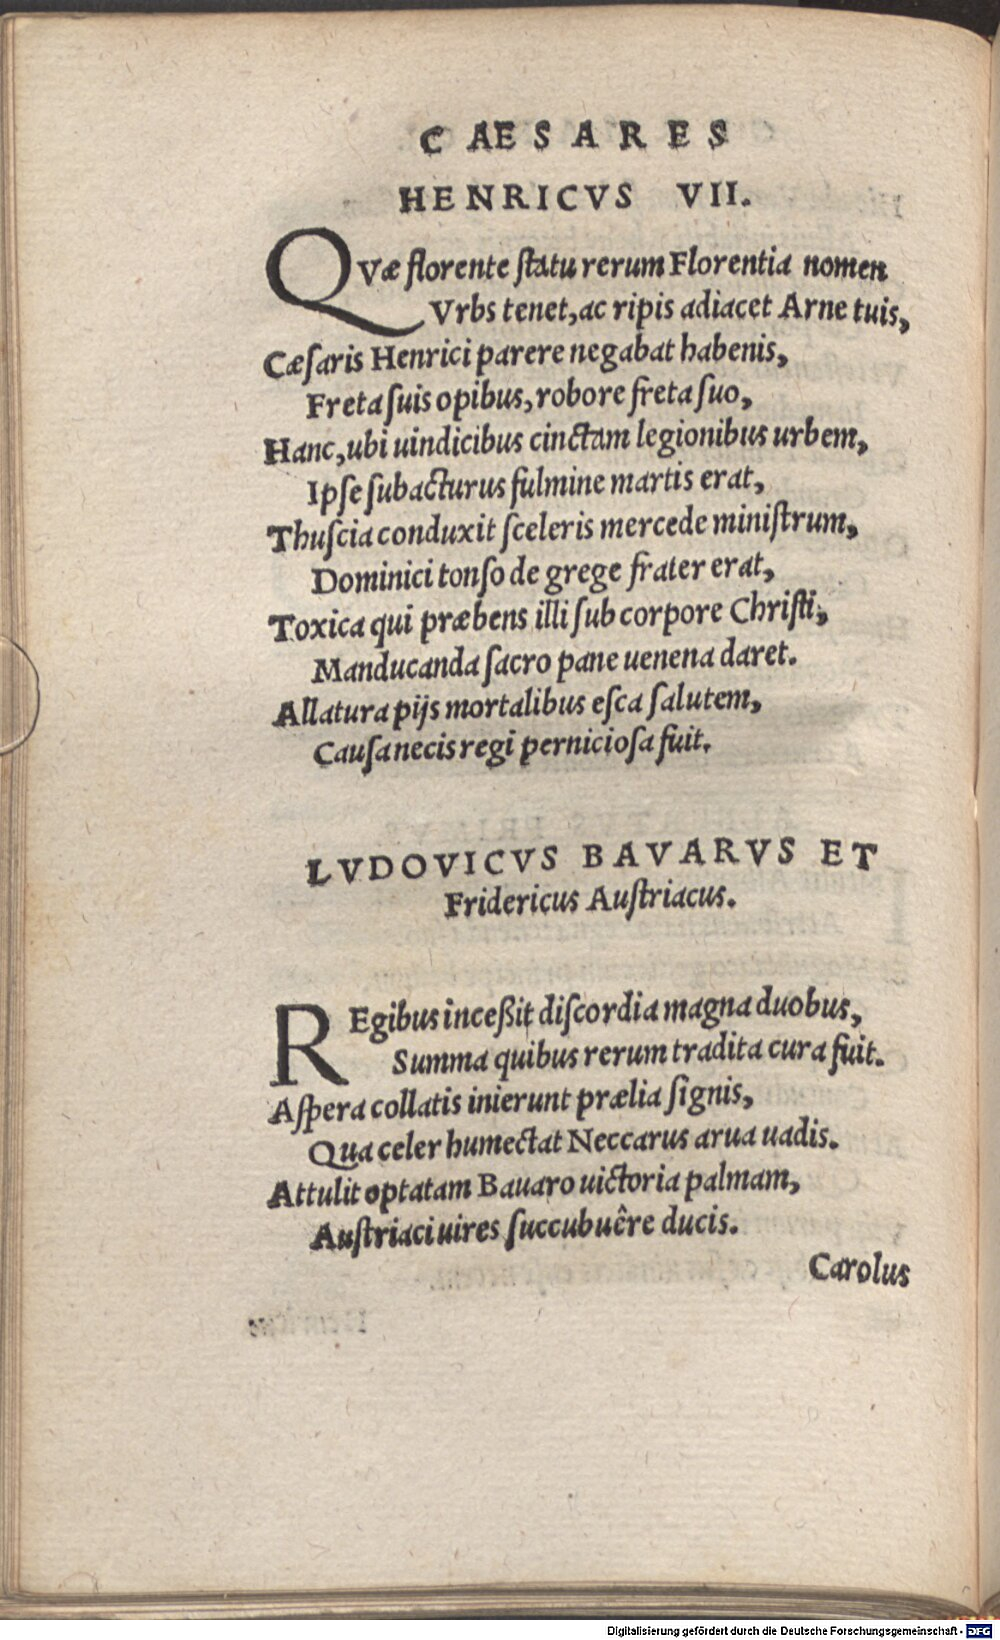 CAESARES
HENRICVS VII.
QVæ florente ſtatu rerum Florentia nomen
Vrbs tenet, ac ripis adiacet Arne tuis,
Cæſaris Henrici parere negabat habenis,
Freta ſuis opibus, robore freta ſuo,
Hanc, ubi uindicibus cinctam legionibus urbem,
Ipſe ſubacturus fulmine martis erat,
Thuſcia conduxit ſceleris mercede miniſtrum,
Dominici tonſo de grege frater erat,
Toxica qui præbens illi ſub corpore Chriſti,
Manducanda ſacro pane uenena daret.
Allatura pijs mortalibus eſca ſalutem,
Cauſa necis regi pernicioſa fuit.
LVDOVICVS BAVARVS ET
Fridericus Auſtriacus.
REgibus inceßit diſcordia magna duobus,
Summa quibus rerum tradita cura fuit.
Aſpera collatis inierunt prælia ſignis,
Qua celer humectat Neccarus arua uadis.
Attulit optatam Bavaro uictoria palmam,
Auſtriaci uires ſuccubuêre ducis.
Carolus
Digitalisierung gefördert durch die Deutsche Forschungsgemeinschaft - DFG